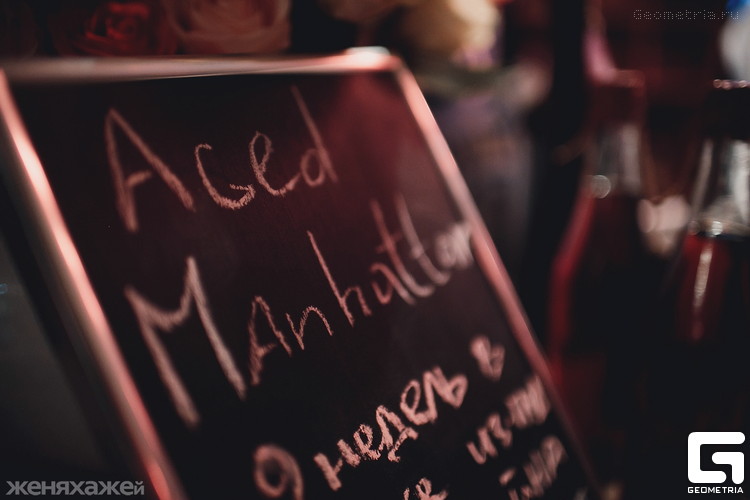 Geometria.ru
Aced
MAnhattan
9 недель в
из-под
женяхажей
GEOMETRIA